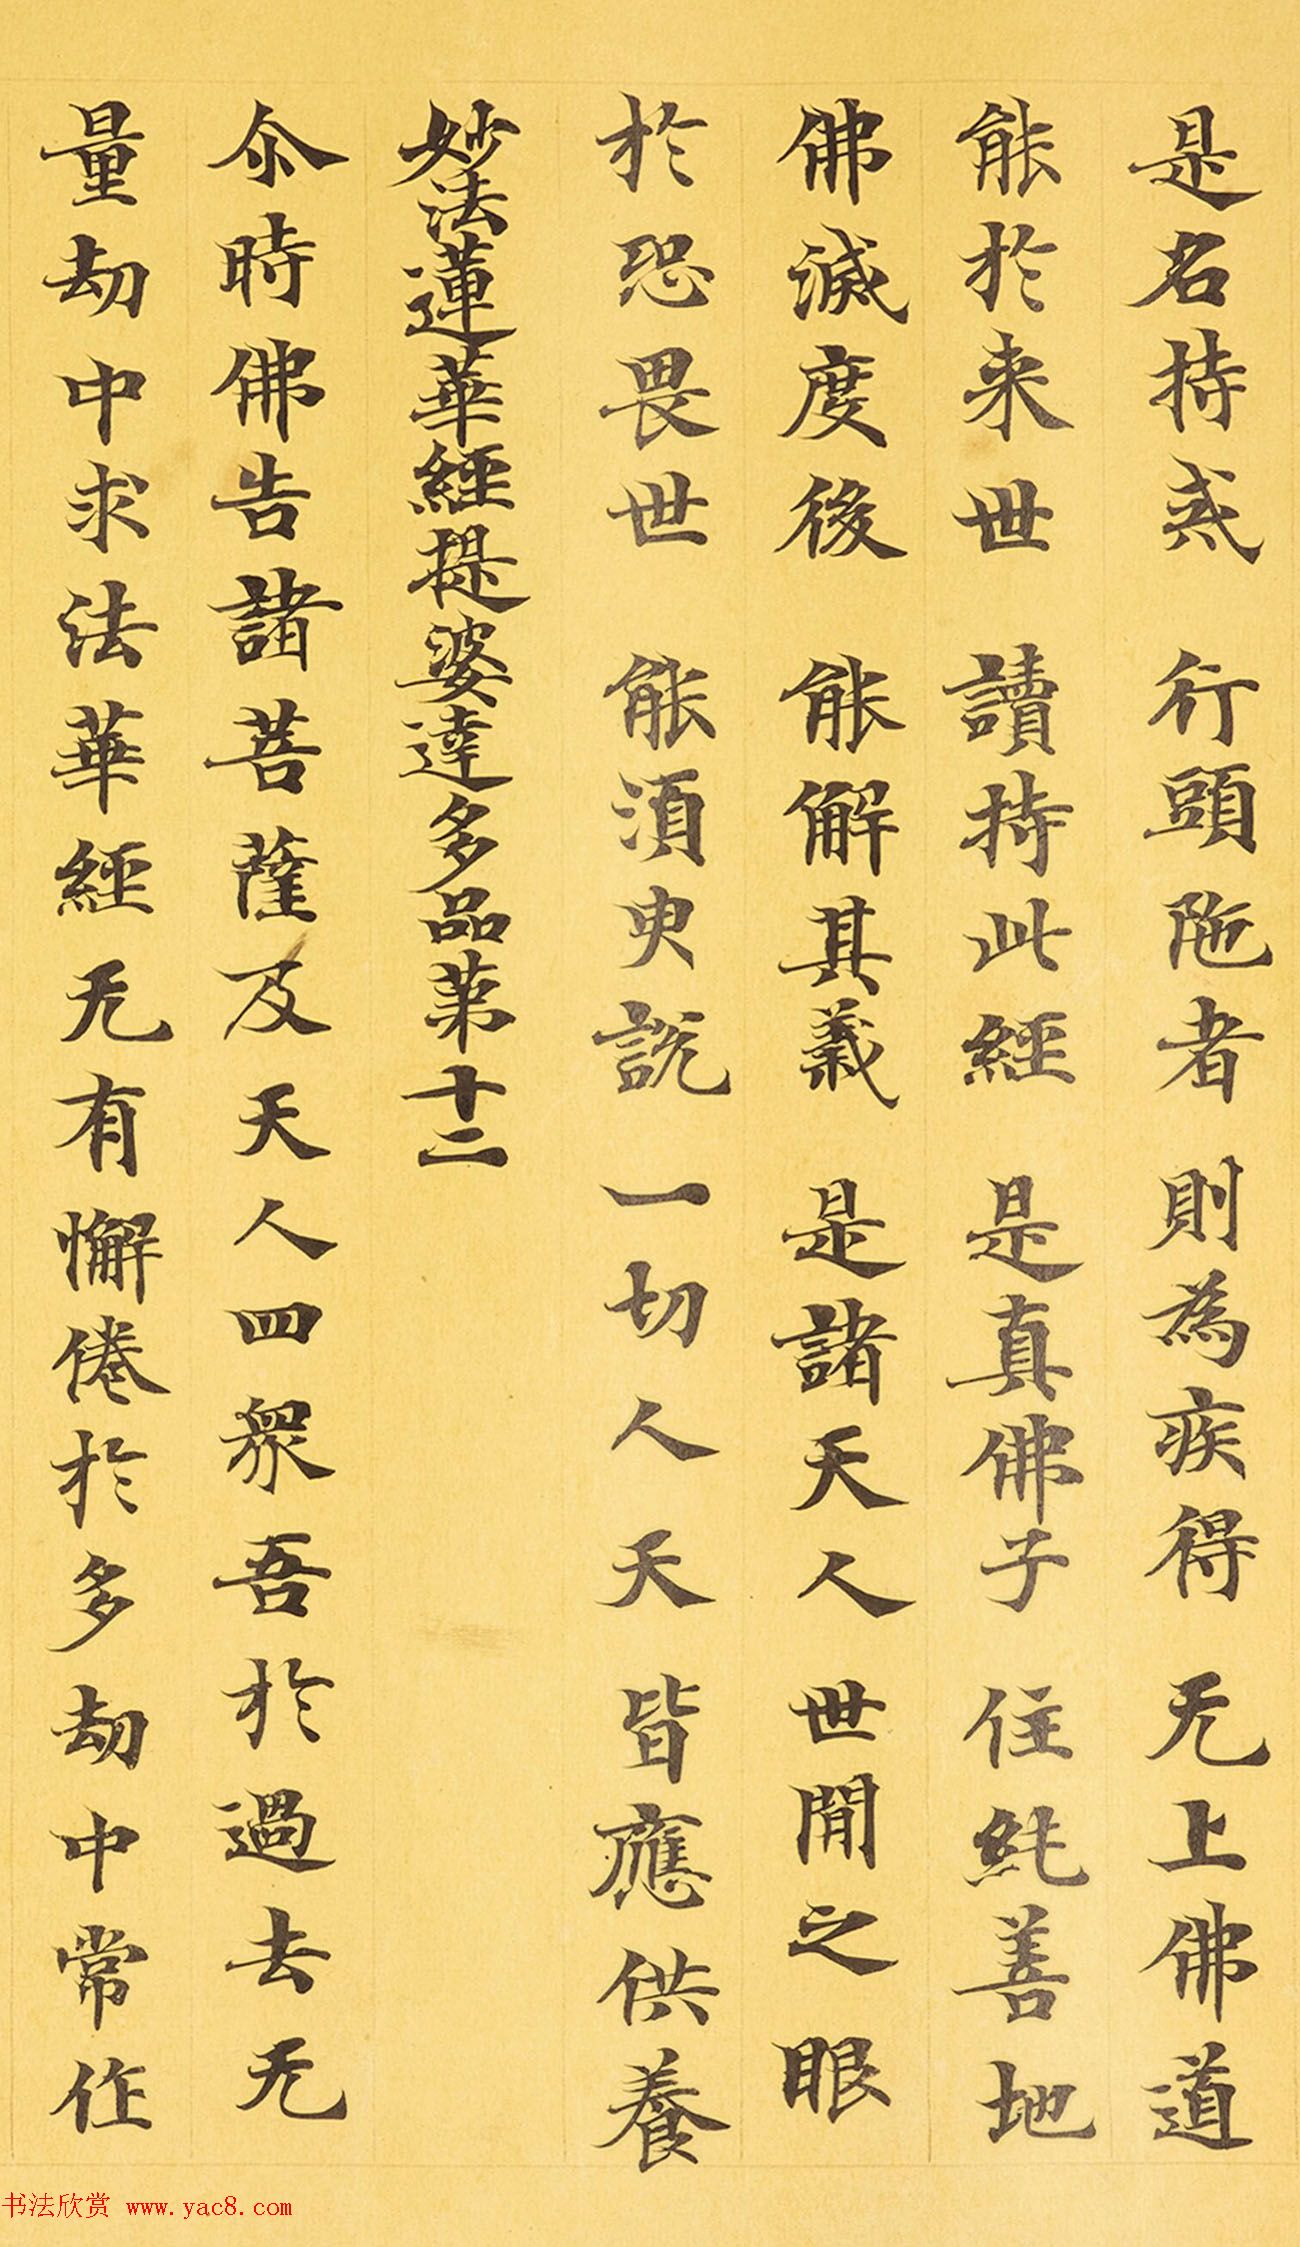 是名持戒 行頭陁者 則為疾得 无上佛道
能於来世 讀持此經 是真佛子 住純善地
佛滅度後 能解其義 是諸天人 世間之眼
於恐畏世 能須臾說 一切人天 皆應供養
妙法蓮華經提婆達多品第十二
尒時佛告諸菩薩及天人四衆吾於過去无
量劫中求法華經无有懈惓於多劫中常作
书法欣赏 www.yac8.com